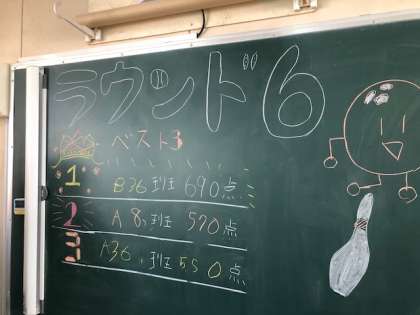 ラウンド6
ベスト3
1 B36班 690点
2 A8班 570点
3 A36班 550点